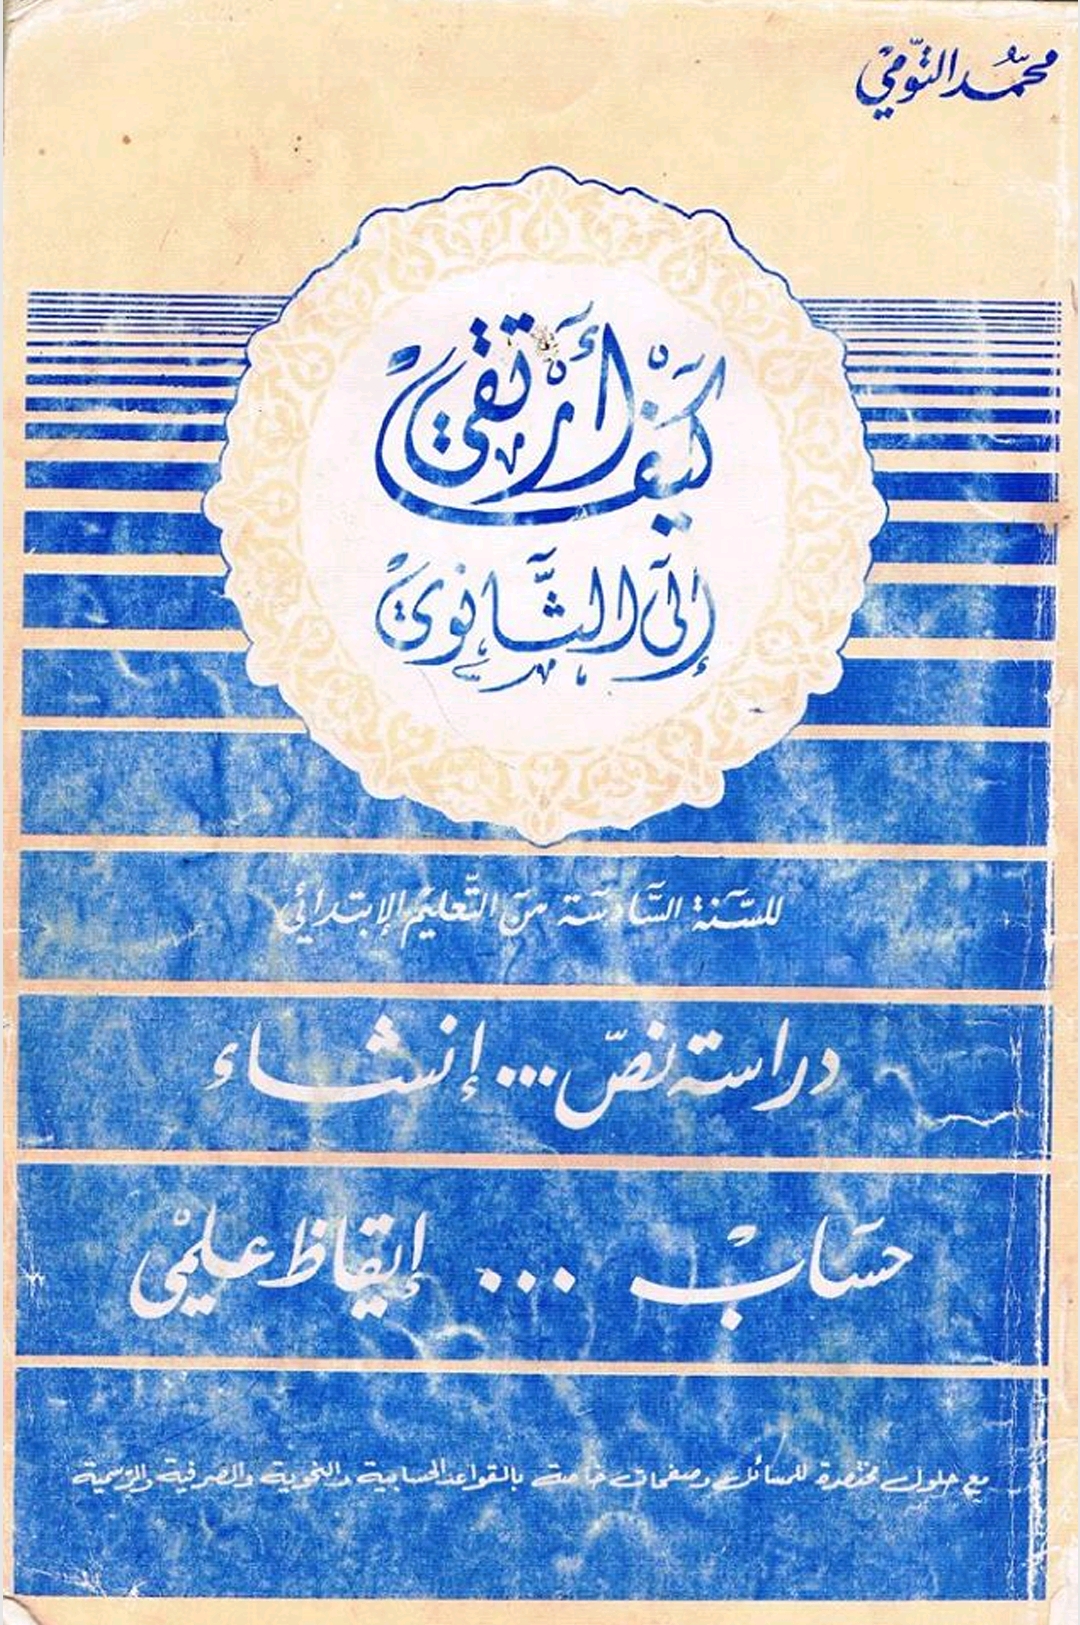 محمّد التّومي
كيف أرتقي
إلى الثّانوي
للسّنة السّادسة من التّعليم الإبتدائي
دراسة نصّ ... إنشاء
حساب ... إيقاظ علمي
مع حلول مختصرة للمسائل وصفحات خاصة بالقواعد الحسابية والنحوية والصرفية والرسمية